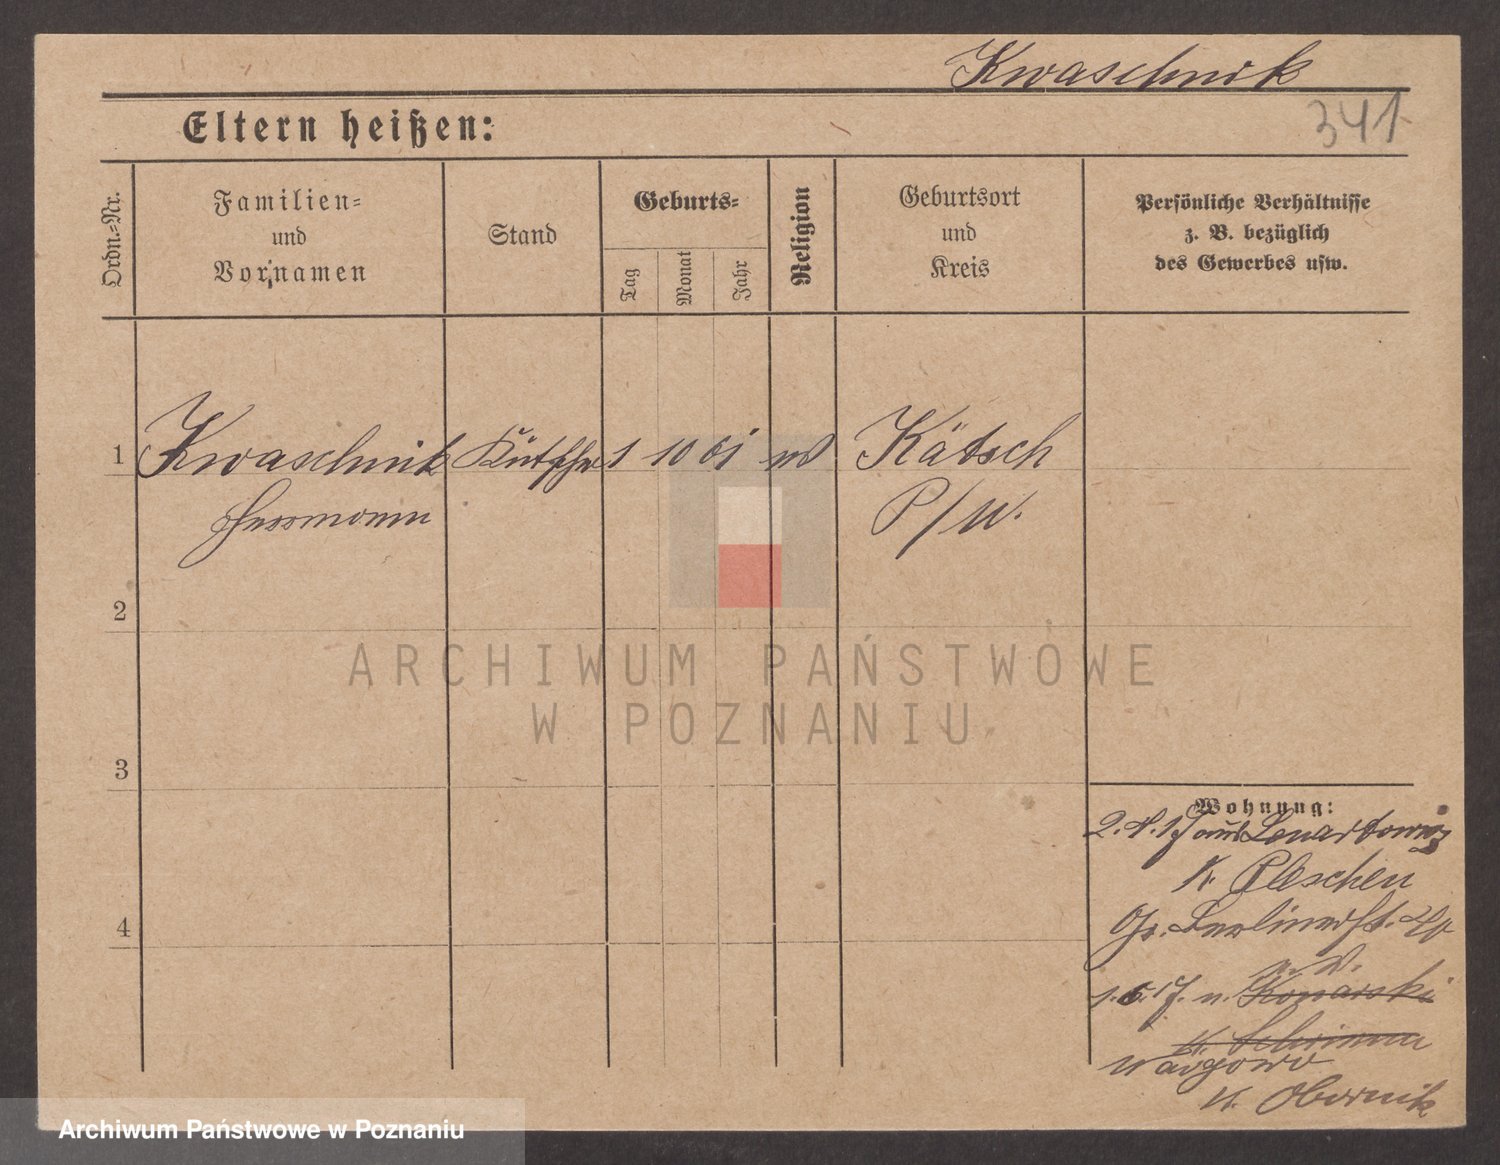 Kwaschnik
341
Eltern heißen:
Ordn.=Nr.
Familien=
und
Vornamen
Stand
Geburts=
Tag
Monat
Jahr
Religion
Geburtsort
und
Kreis
Persönliche Verhältnisse
z. B. bezüglich
des Gewerbes usw.
1 Kwaschnik Kutscher 1 10 61 Kätsch
Hermann P/W.
2
3
4
Wohnung:
2.4.17 aus Lenartowitz
K. Pleschen
Gr. Berlinerst.
1.6.17. n. Konarski
K. Schrimm
Wargowo
K. Obornik
ARCHIWUM PAŃSTWOWE
W POZNANIU
Archiwum Państwowe w Poznaniu